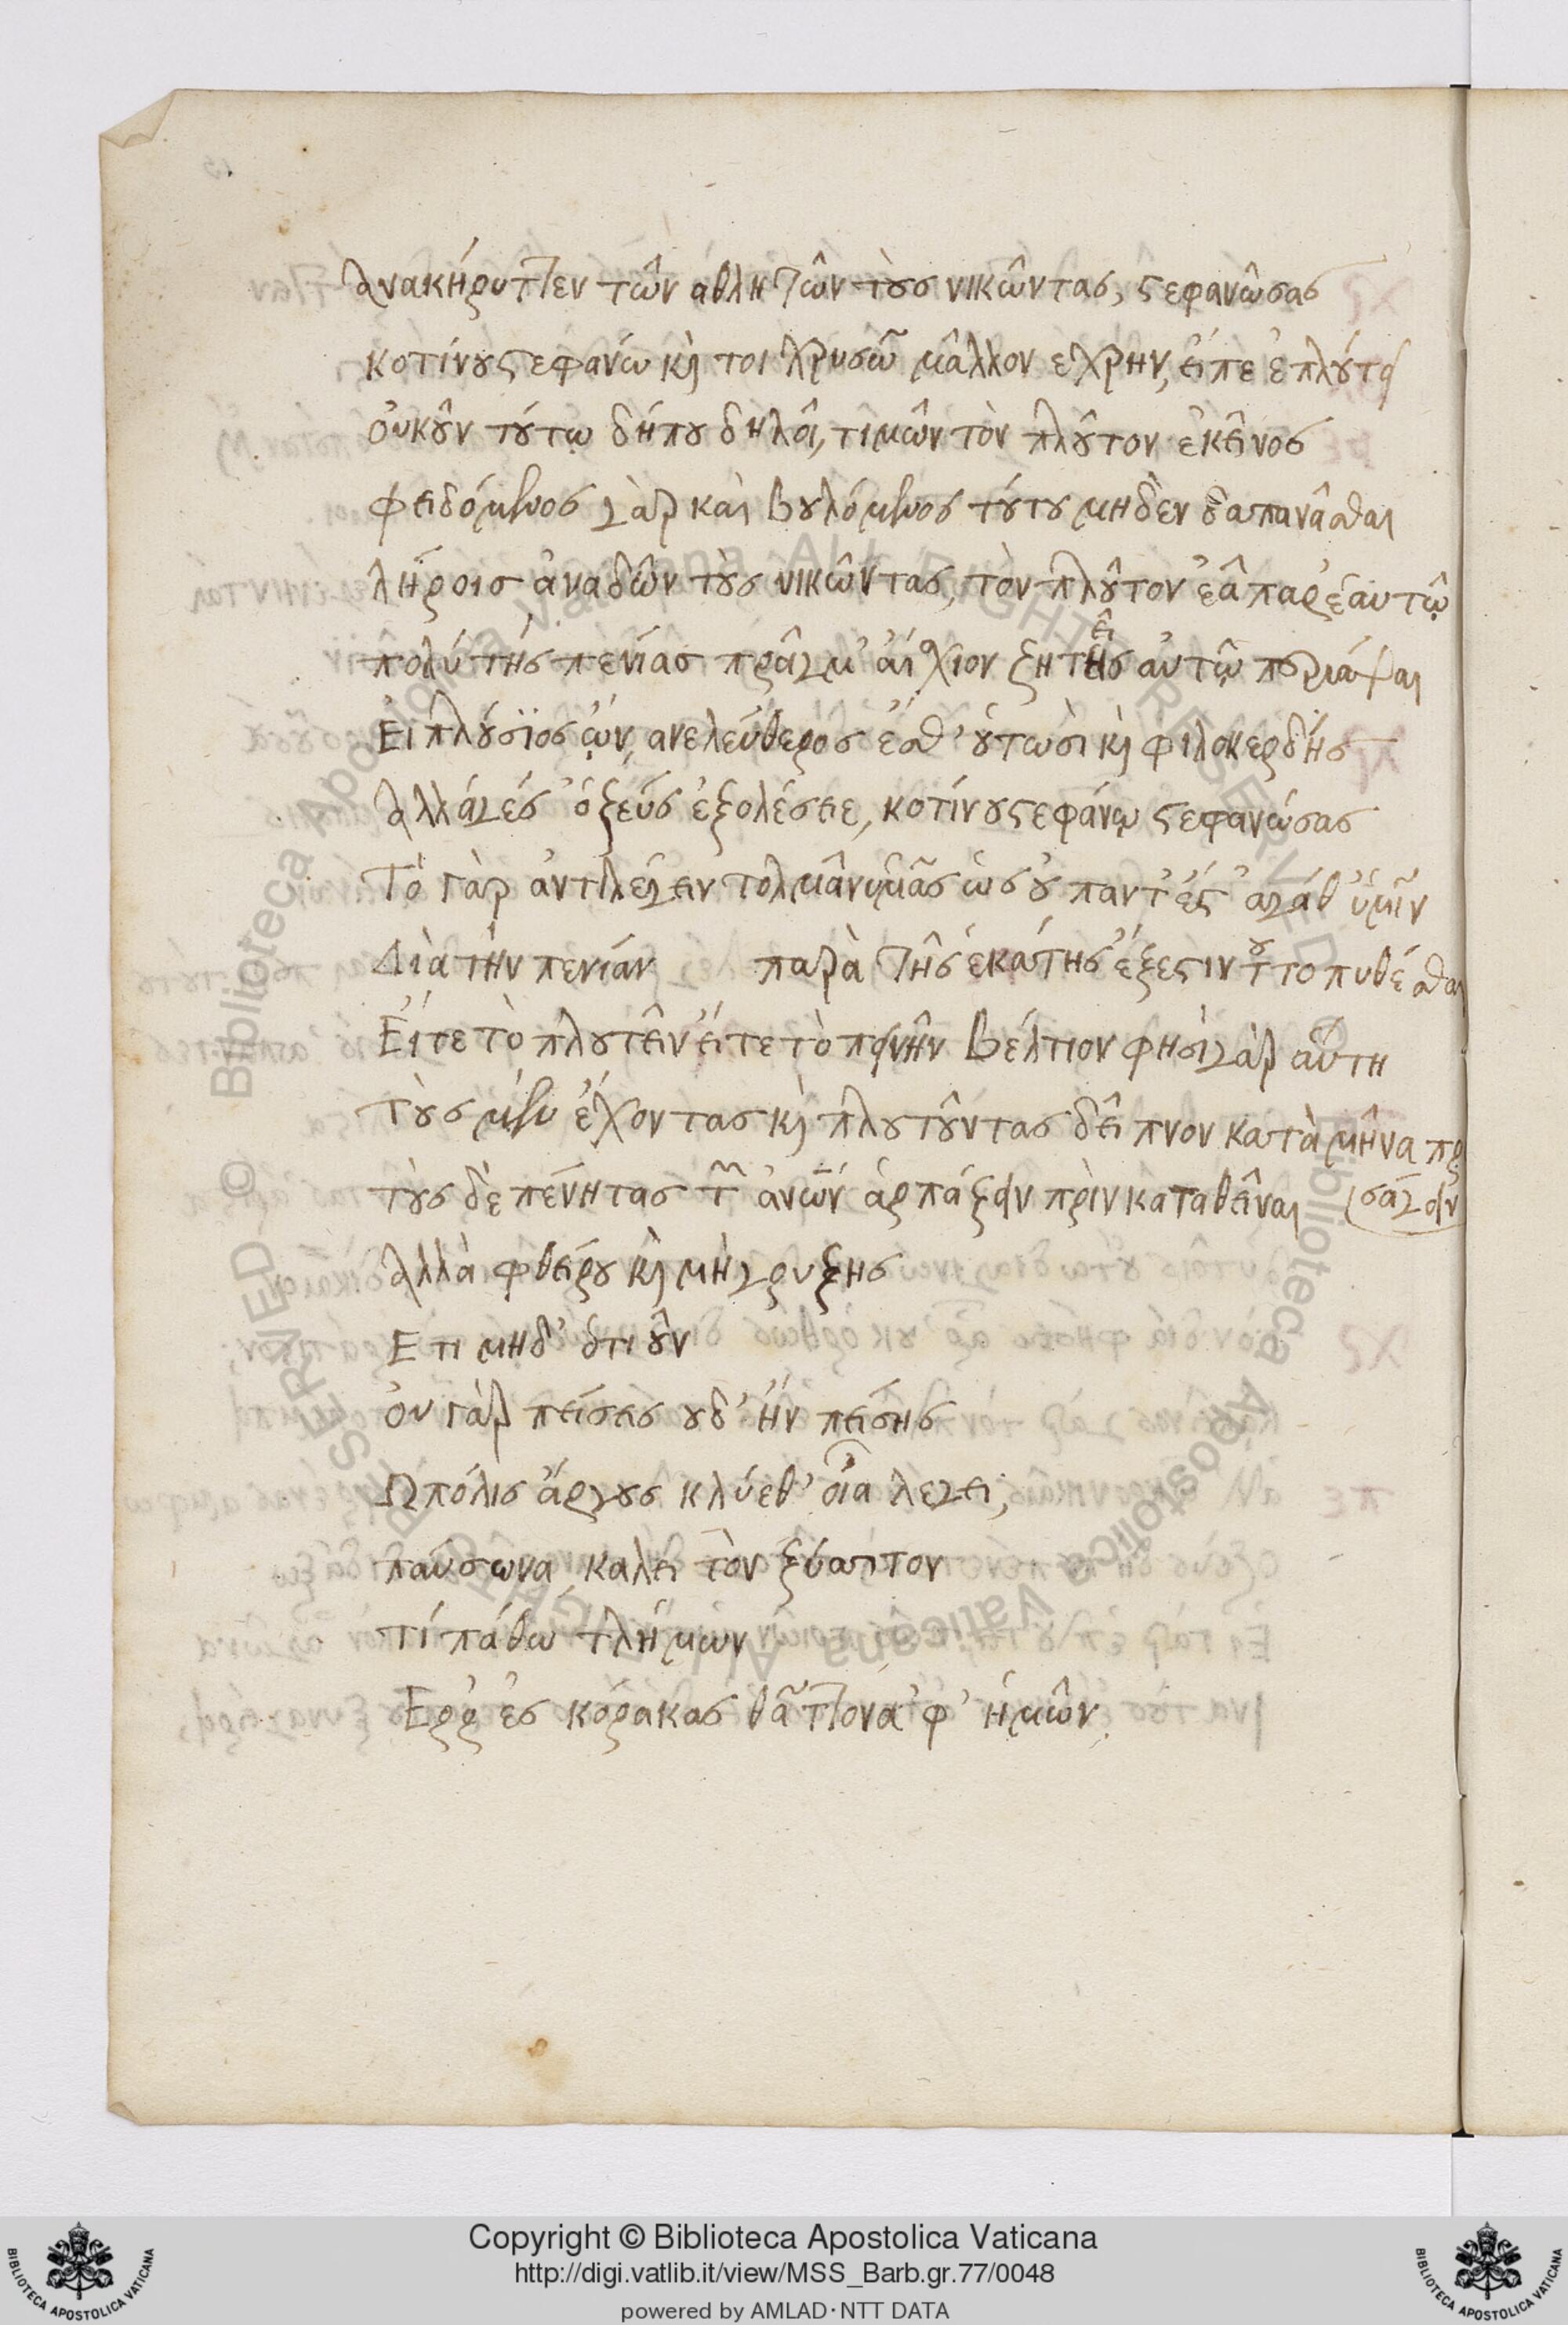 Ανακήρυττεν τῶν αθλητῶν τοὺς νικῶντας, στεφανῶσας
κοτίνου στεφανίω καὶ τοι χρυσῶ μᾶλλον εχρην, εἴπερ ἐπλούτει
ὀυκοῦν τούτῳ δήπου δηλοῖ, τιμῶν τὸν πλοῦτον ἐκεῖνος
φειδόμενος γὰρ καὶ βουλόμενος τούτου μηδὲν δαπανᾶσθαι
λήροισ ἀναδῶν τοὺς νικῶντας, τὸν πλοῦτον ἐᾶ παρ' ἑαυτῷ
πολὺ τῆς πενίας πρᾶγμ' ἀίσχιον ζητεῖς ἀυτῷ περιάψαι
Ει πλούσϊος ὤν, ανελεύθερος ἐσθ' ὁυτωσὶ καὶ φιλοκερδής
Αλλά γέ σ' ὁ ζεύς ἐξολέσειε, κοτίνου στεφάνῳ στεφανώσας
Τὸ γὰρ ἀντιλέγειν τολμᾶν ὑμᾶς ὡς οὐ παντ' ἐστ' αγάθ' ὑμῖν
Διὰ τὴν πενίαν παρὰ τῆς ἑκάτης ἔξεστιν τοῦτο πυθέσθαι
Εἴτε τὸ πλουτεῖν εἴτε τὸ πεινῆν βέλτιον φησὶ γὰρ αὕτη
Τοὺς μὲν ἔχοντας καὶ πλουτοῦντας δεῖπνον κατὰ μῆνα προ
τοὺς δὲ πένητας τῶν ἀνων ἁρπάζειν πρὶν καταθεῖναι (σάγειν
Αλλὰ φθείρου καὶ μὴ γρυξης
Ετι μηδ' ὁτιοῦν
ὀυ γὰρ πείσεις ουδ' ἢν πείσης
Ω πόλις ἄργους κλύεθ' οἷα λεγει;
παύσωνα καλει τὸν ξύσσιτον
Τί πάθω τλήμων
Ερρ' ἐς κόρακας θᾶττον ἀφ' ἡμῶν.
Copyright © Biblioteca Apostolica Vaticana
http://digi.vatlib.it/view/MSS_Barb.gr.77/0048
powered by AMLAD·NTT DATA